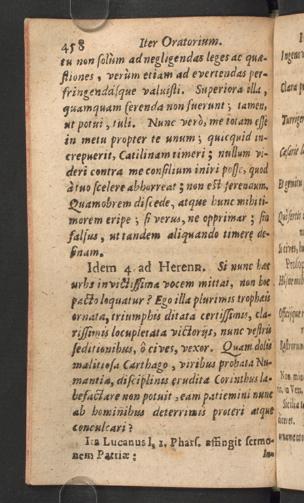 458 Iter Oratorium.
tu non solùm ad negligendas leges ac quæ-
stiones, verùm etiam ad evertendas per-
fringendasque valuisti. Superiora illa,
quamquam ferenda non fuerunt; tamen,
ut potui, tuli. Nunc verò, me totam esse
in metu propter te unum; quicquid in-
crepuerit, Catilinam timeri; nullum vi-
deri contra me consilium iniri posse, quod
à tuo scelere abhorreat; non est ferendum.
Quamobrem discede, atque hunc mihi ti-
morem eripe; si verus, ne opprimar; sin
falsus, ut tandem aliquando timere de-
sinam.
Idem 4. ad Herenn. Si nunc hæc
urbs invictissima vocem mittat, non hoc
pacto loquatur? Ego illa plurimis trophæis
ornata, triumphis ditata certissimis, cla-
rissimis locupletata victorijs, nunc vestris
seditionibus, ô cives, vexor. Quam dolis
malitiosa Carthago, viribus probata Nu-
mantia, disciplinis erudita Corinthus la-
befactare non potuit, eam patiemini nunc
ab hominibus deterrimis proteri atque
conculcari?
Ita Lucanus l. 1. Phars. affingit sermo-
nem Patriæ: